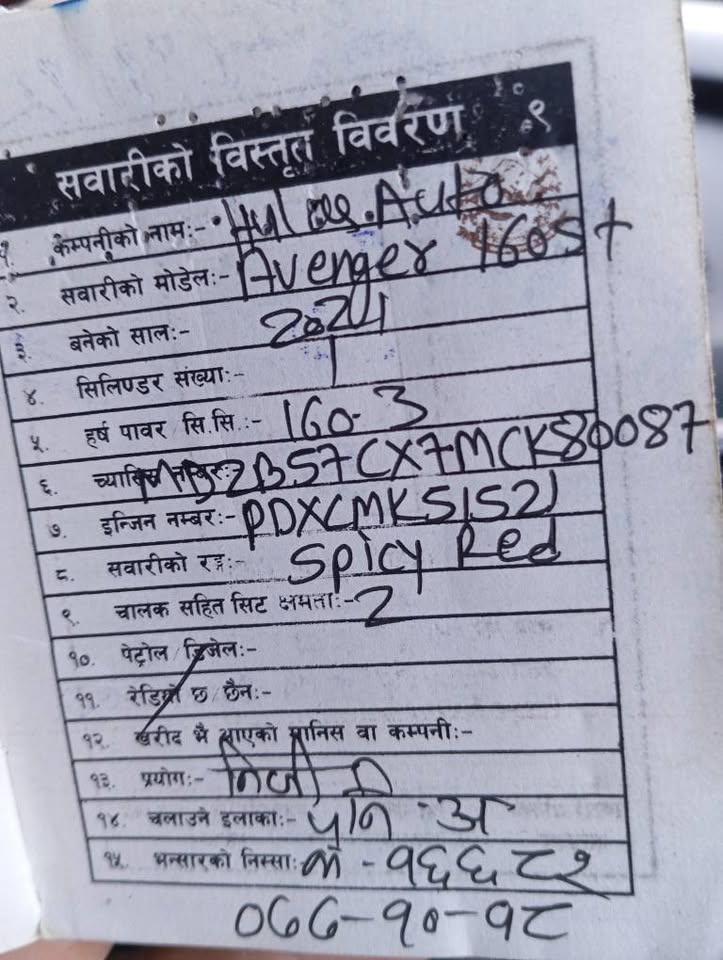 सवारीको विस्तृत विवरण १
१. कम्पनीको नाम:- Hulas Auto
२. सवारीको मोडेल:- Avenger 160 St
३. बनेको साल:- 2021
४. सिलिण्डर संख्या:- 1
५. हर्ष पावर सि.सि.:- 160.3
६. MB2B57CX7MCK80087
७. इन्जिन नम्बर:- PDXCMK51521
८. सवारीको रङ्ग:- Spicy Red
९. चालक सहित सिट क्षमता:- 2
१०. पेट्रोल/डिजेल:-
११. रेडियो छ छैन:-
१२. खरीद भै आएको मानिस वा कम्पनी:-
१३. प्रयोग:- निजी
१४. चलाउने इलाका:- अ
१५. भन्सारको निस्सा:- म - १६६८१
०७७-१०-१८